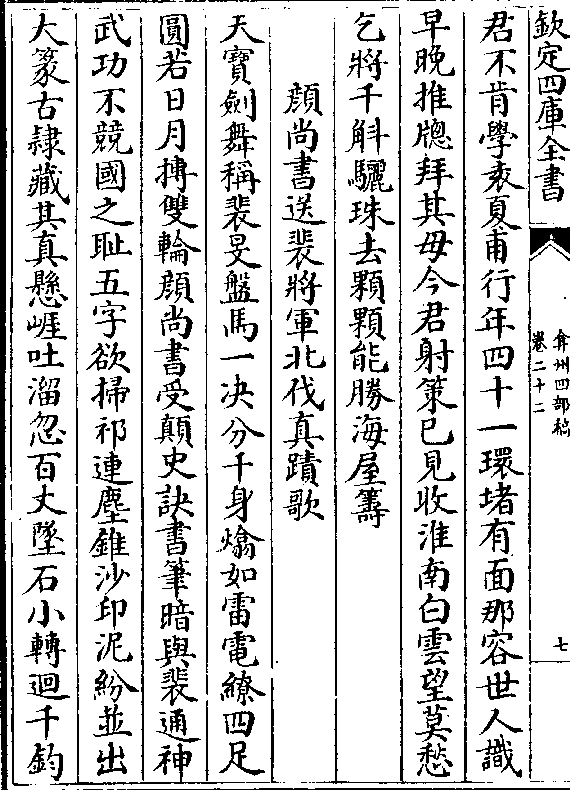 欽定四庫全書
弇州四部稿
卷二十二
七
君不肯學袁夏甫行年四十一環堵有面那容世人識
早晚推牕拜其母今君射策已見收淮南白雲望莫愁
乞將千斛驪珠去顆顆能勝海屋籌
顔尚書送裴將軍北伐真蹟歌
天寶劍舞稱裴旻盤馬一决分千身熻如雷電繚四足
圓若日月摶雙輪顔尚書受顛史訣書筆暗與裴通神
武功不競國之耻五字欲掃祁連塵錐沙印泥紛並出
大篆古隷藏其真懸崕吐溜忽百丈墜石小轉迴千鈞